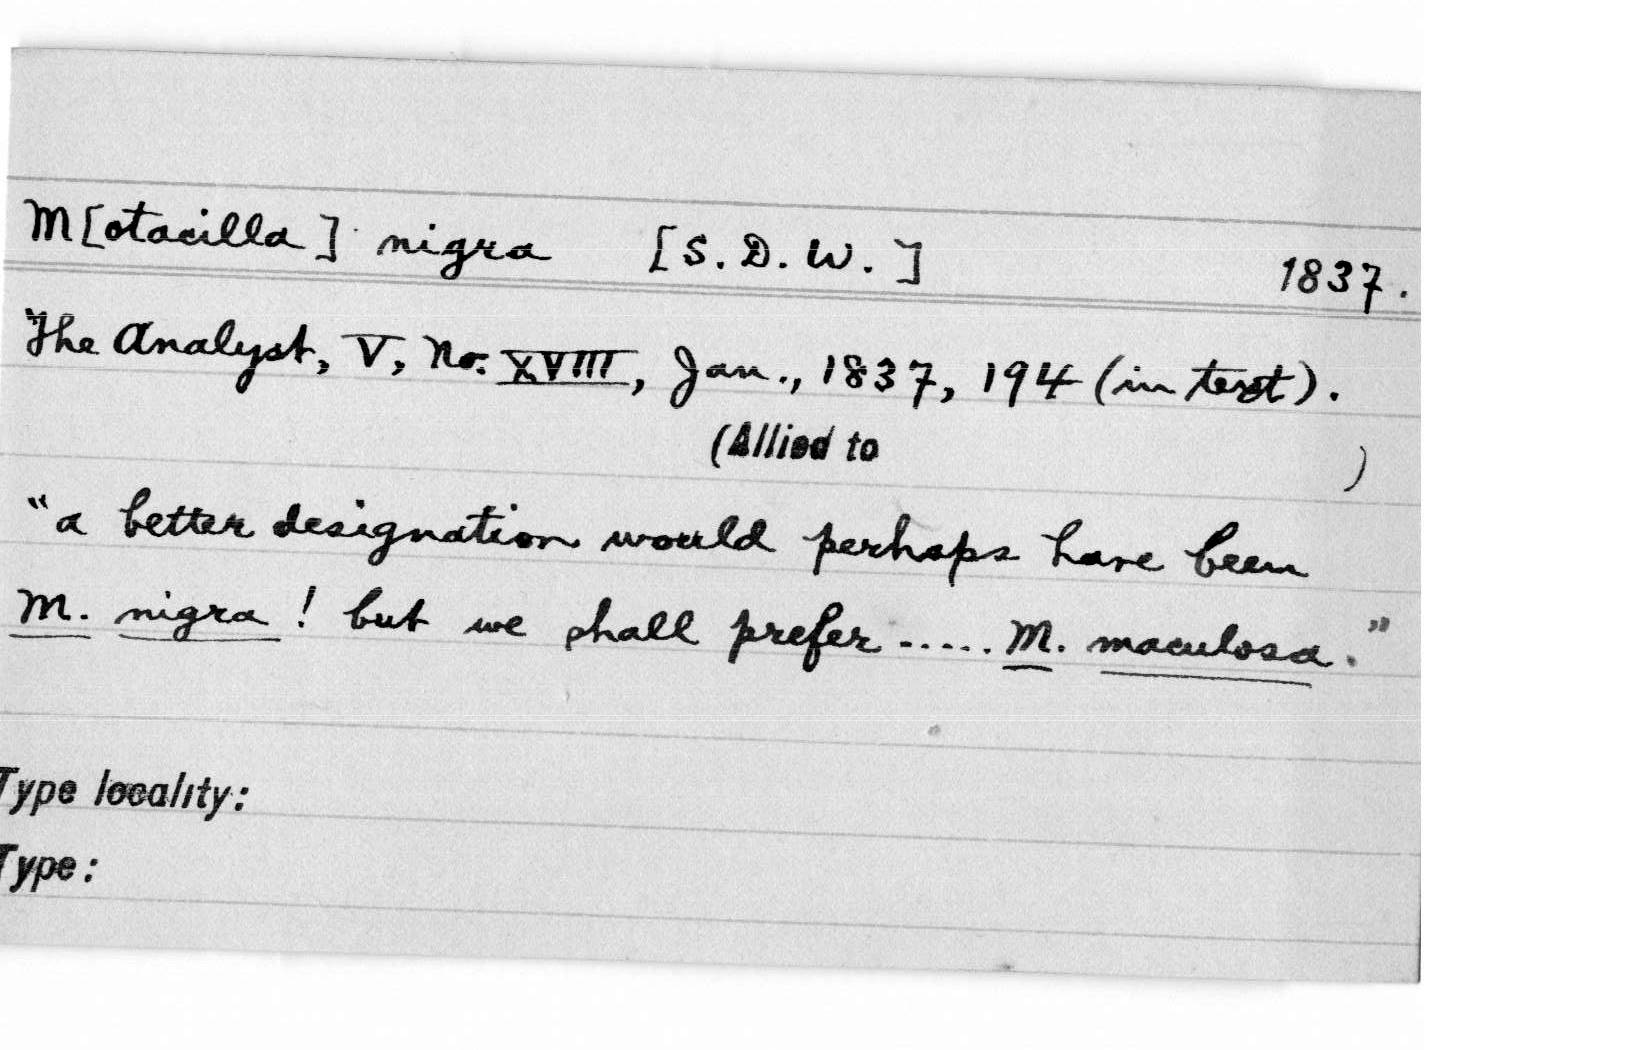 M[otacilla] nigra [S. D. W.] 1837.
The Analyst, V, No. XVIII, Jan., 1837, 194 (in text).
(Allied to )
"a better designation would perhaps have been
M. nigra! but we shall prefer ..... M. maculosa."
Type locality:
Type: